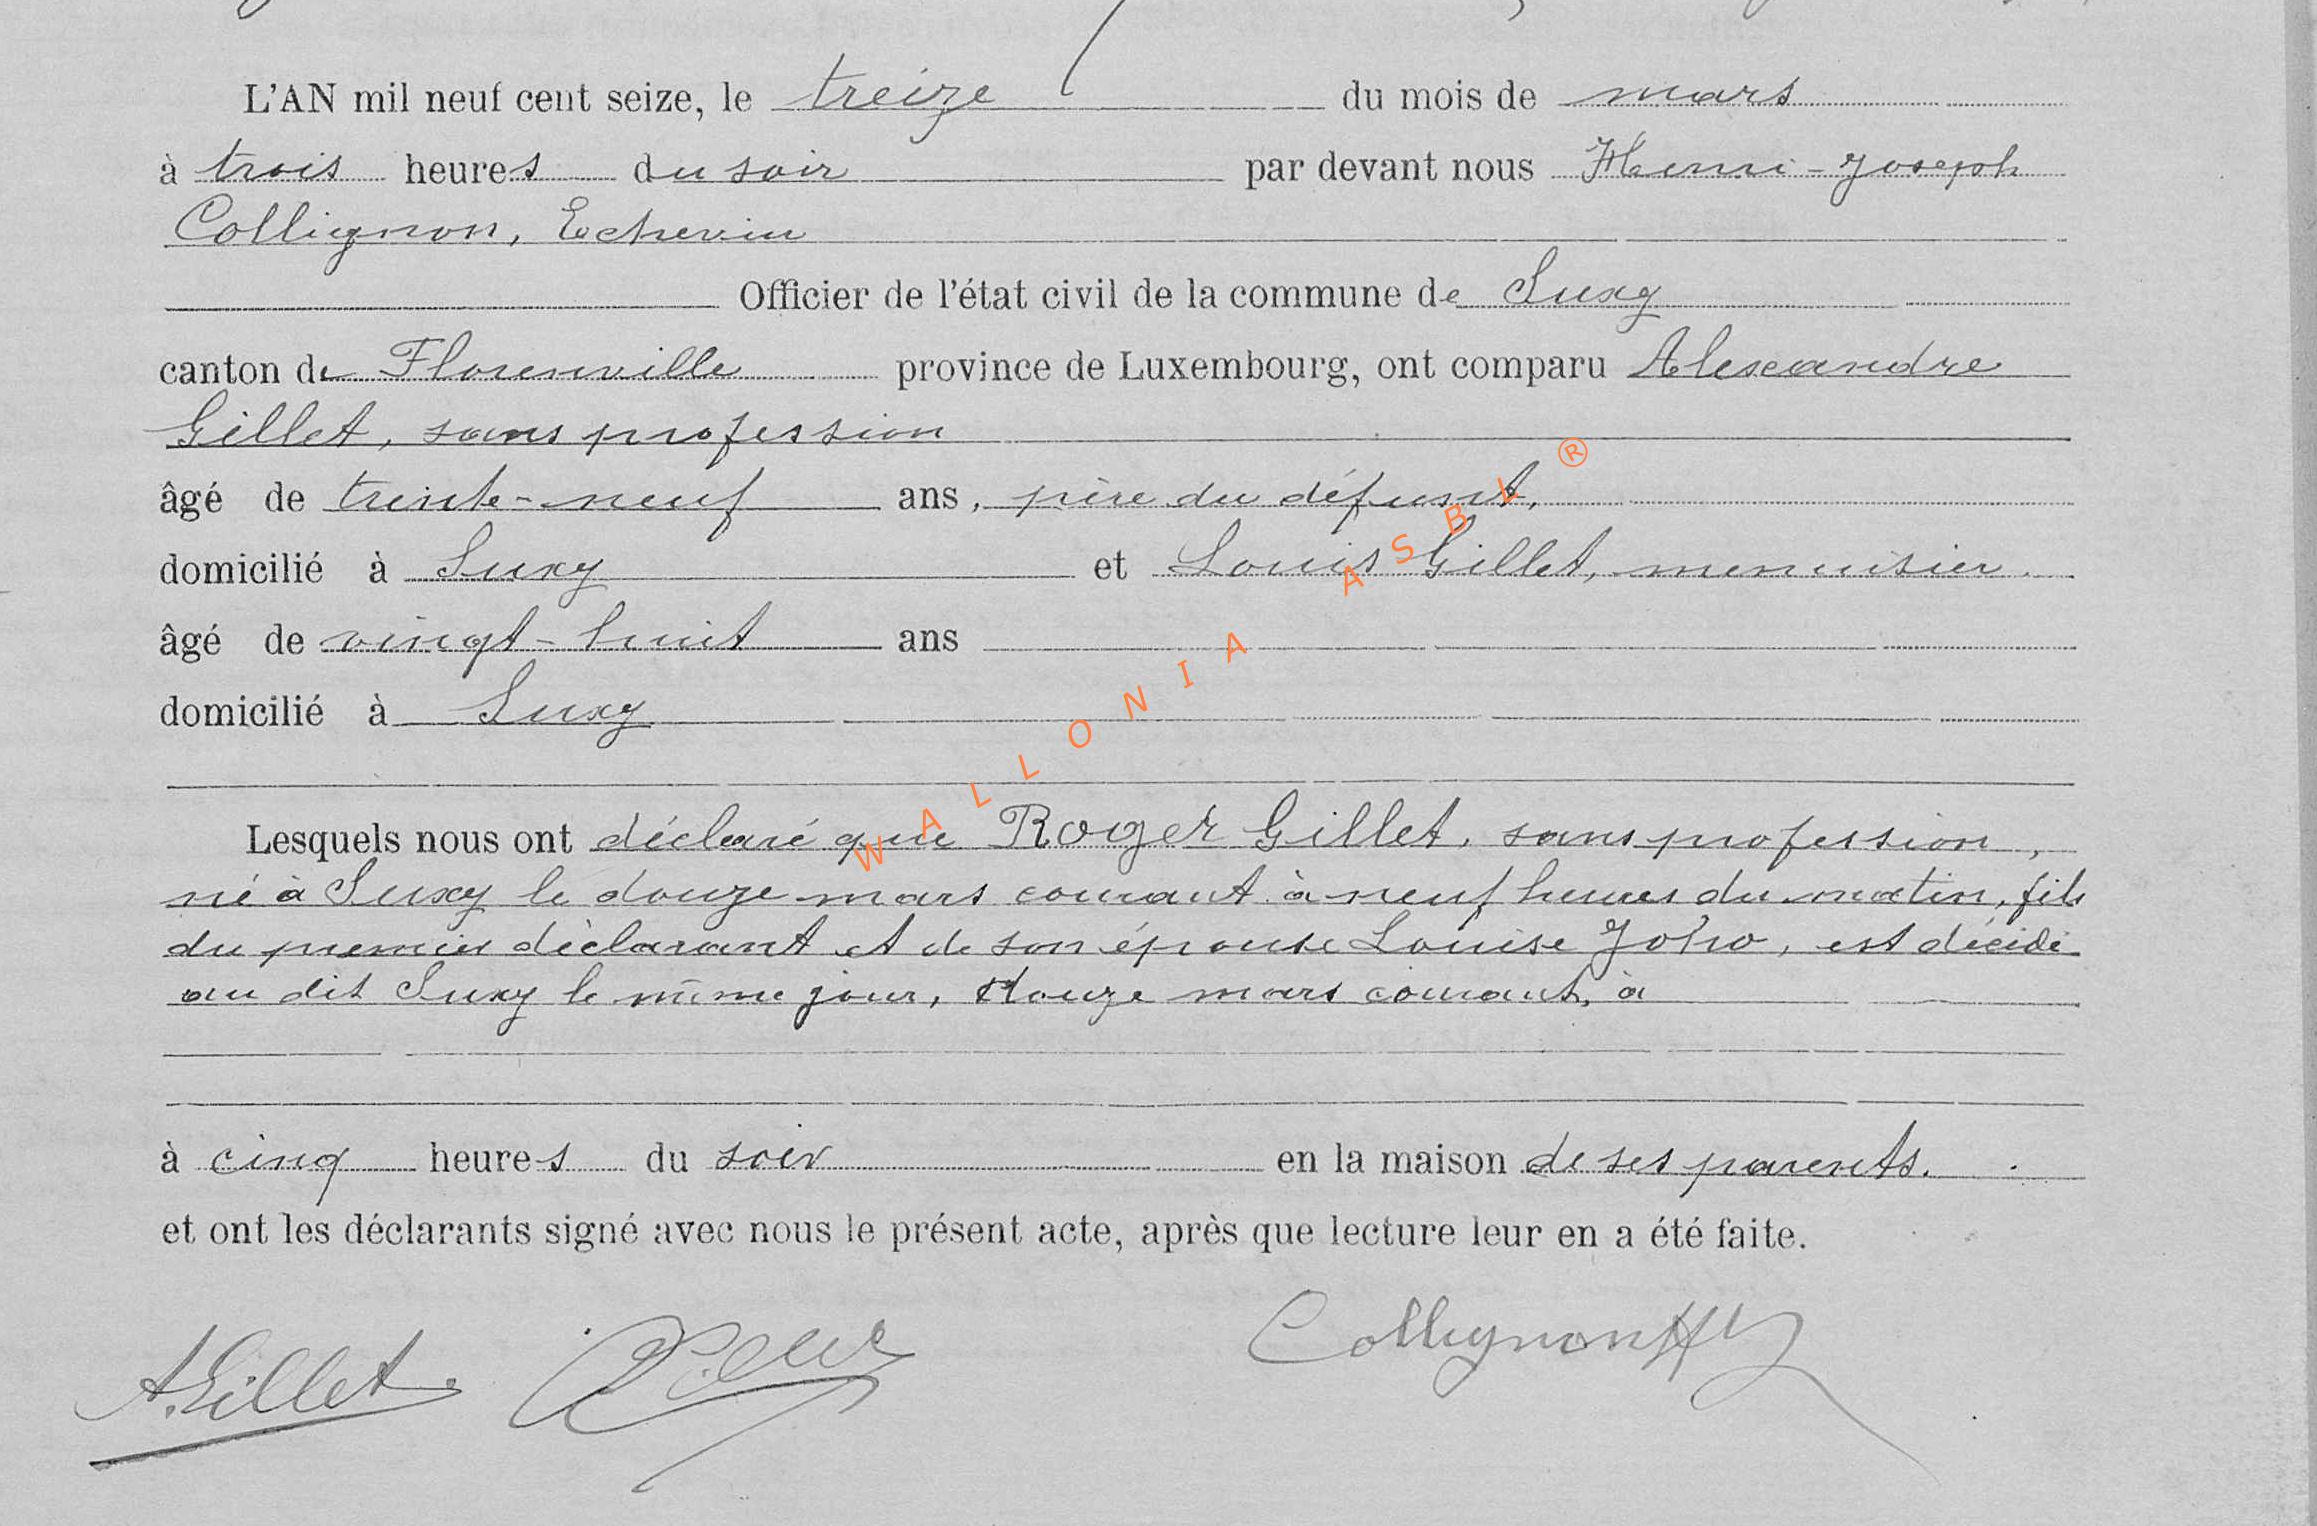 L'AN mil neuf cent seize, le treize du mois de mars
à trois heures du soir par devant nous Henri-Joseph
Collignon, Echevin
Officier de l'état civil de la commune de Suxy
canton de Florenville province de Luxembourg, ont comparu Alexandre
Gillet, sans profession
âgé de trente-neuf ans, père du défunt,
domicilié à Suxy et Louis Gillet, menuisier
âgé de vingt-huit ans
domicilié à Suxy
Lesquels nous ont déclaré que Roger Gillet, sans profession,
né à Suxy le douze mars courant à neuf heures du matin, fils
du premier déclarant et de son épouse Louise Joho, est décédé
au dit Suxy le même jour, douze mars courant, à
à cinq heures du soir en la maison de ses parents.
et ont les déclarants signé avec nous le présent acte, après que lecture leur en a été faite.
A. Gillet Collignon HJ
WALLONIA ASBL ®